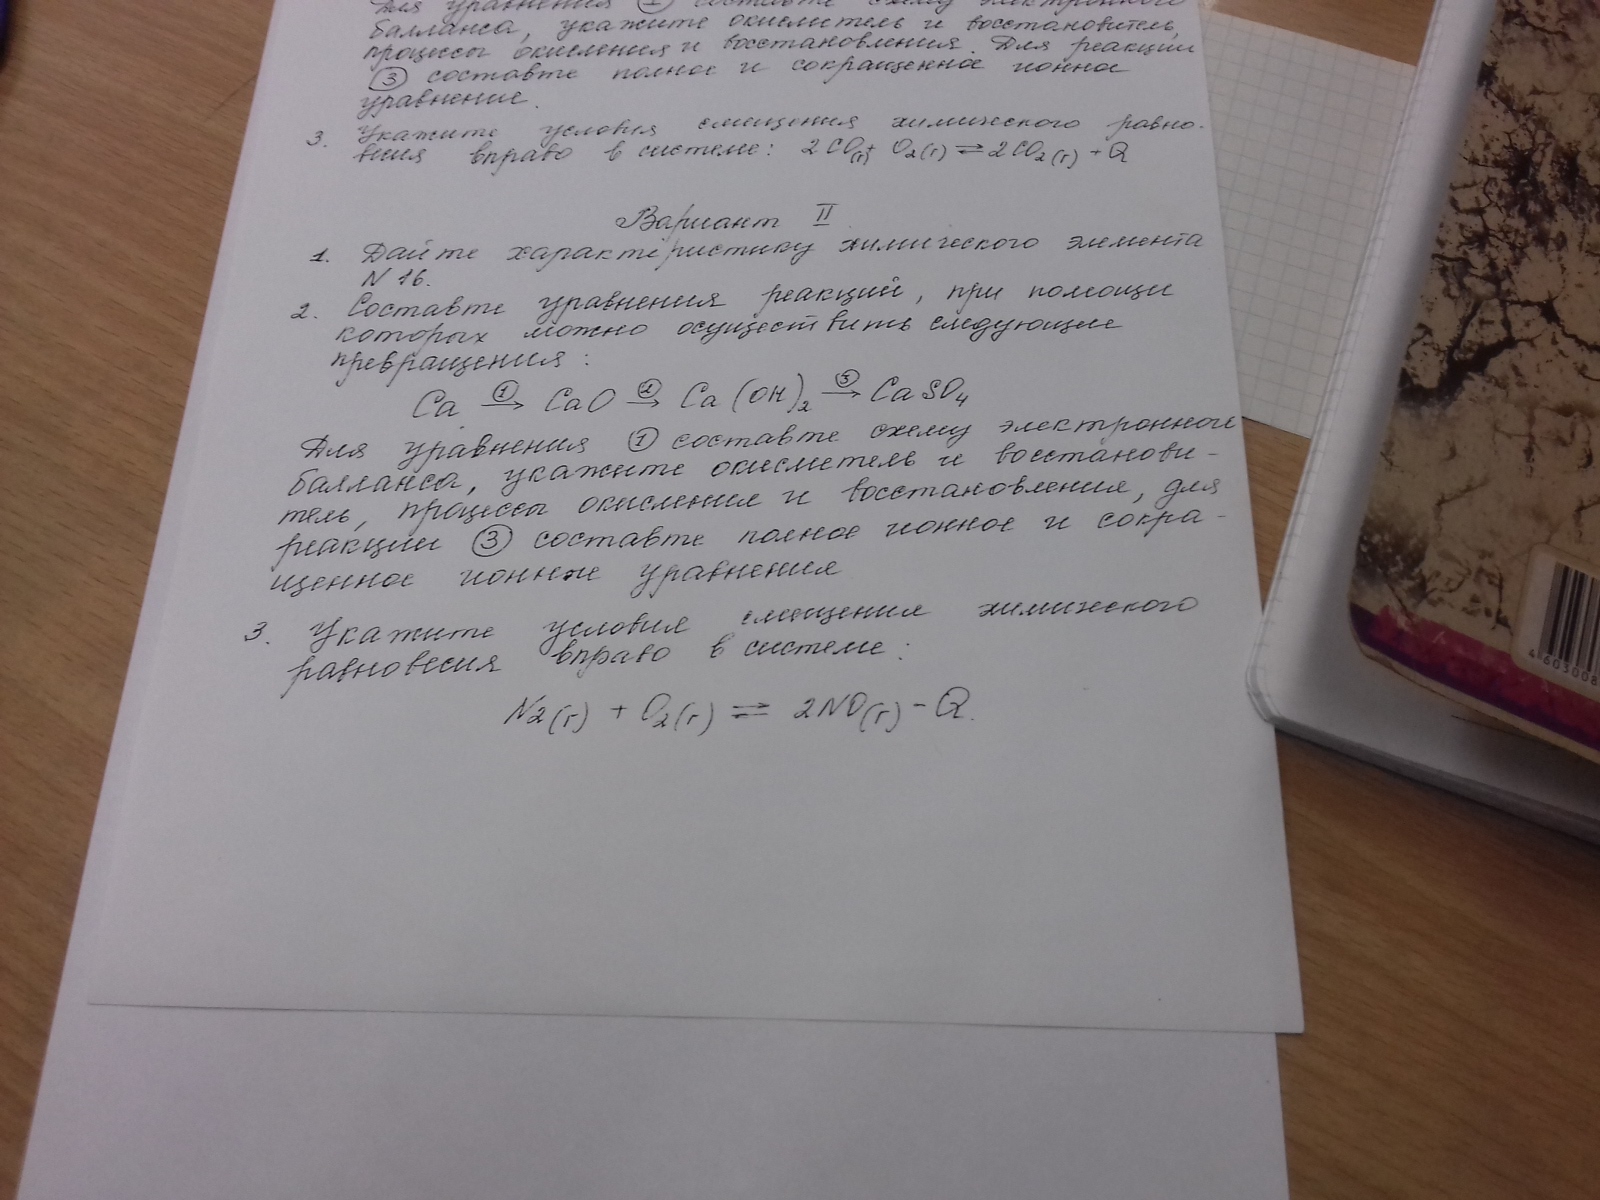 Для уравнения ① составте схему электронного
балланса, укажите окислитель и восстановитель,
процессы окисления и восстановления. Для реакции
③ составте полное и сокращенное ионное
уравнение.
3. Укажите условия смещения химического равно-
весия вправо в системе: 2CO(г)+ O2(г) ⇌ 2CO2(г) + Q
Вариант II.
1. Дайте характеристику химического элемента
N 16.
2. Составте уравнения реакций, при помощи
которых можно осуществить следующие
превращения:
Ca ①→ CaO ②→ Ca(OH)2 ③→ CaSO4
Для уравнения ① составте схему электронного
балланса, укажите окислитель и восстанови-
тель, процессы окисления и восстановления, для
реакции ③ составте полное ионное и сокра-
щенное ионное уравнения
3. Укажите условия смещения химического
равновесия вправо в системе:
N2(г) + O2(г) ⇌ 2NO(г) - Q.
4 603008